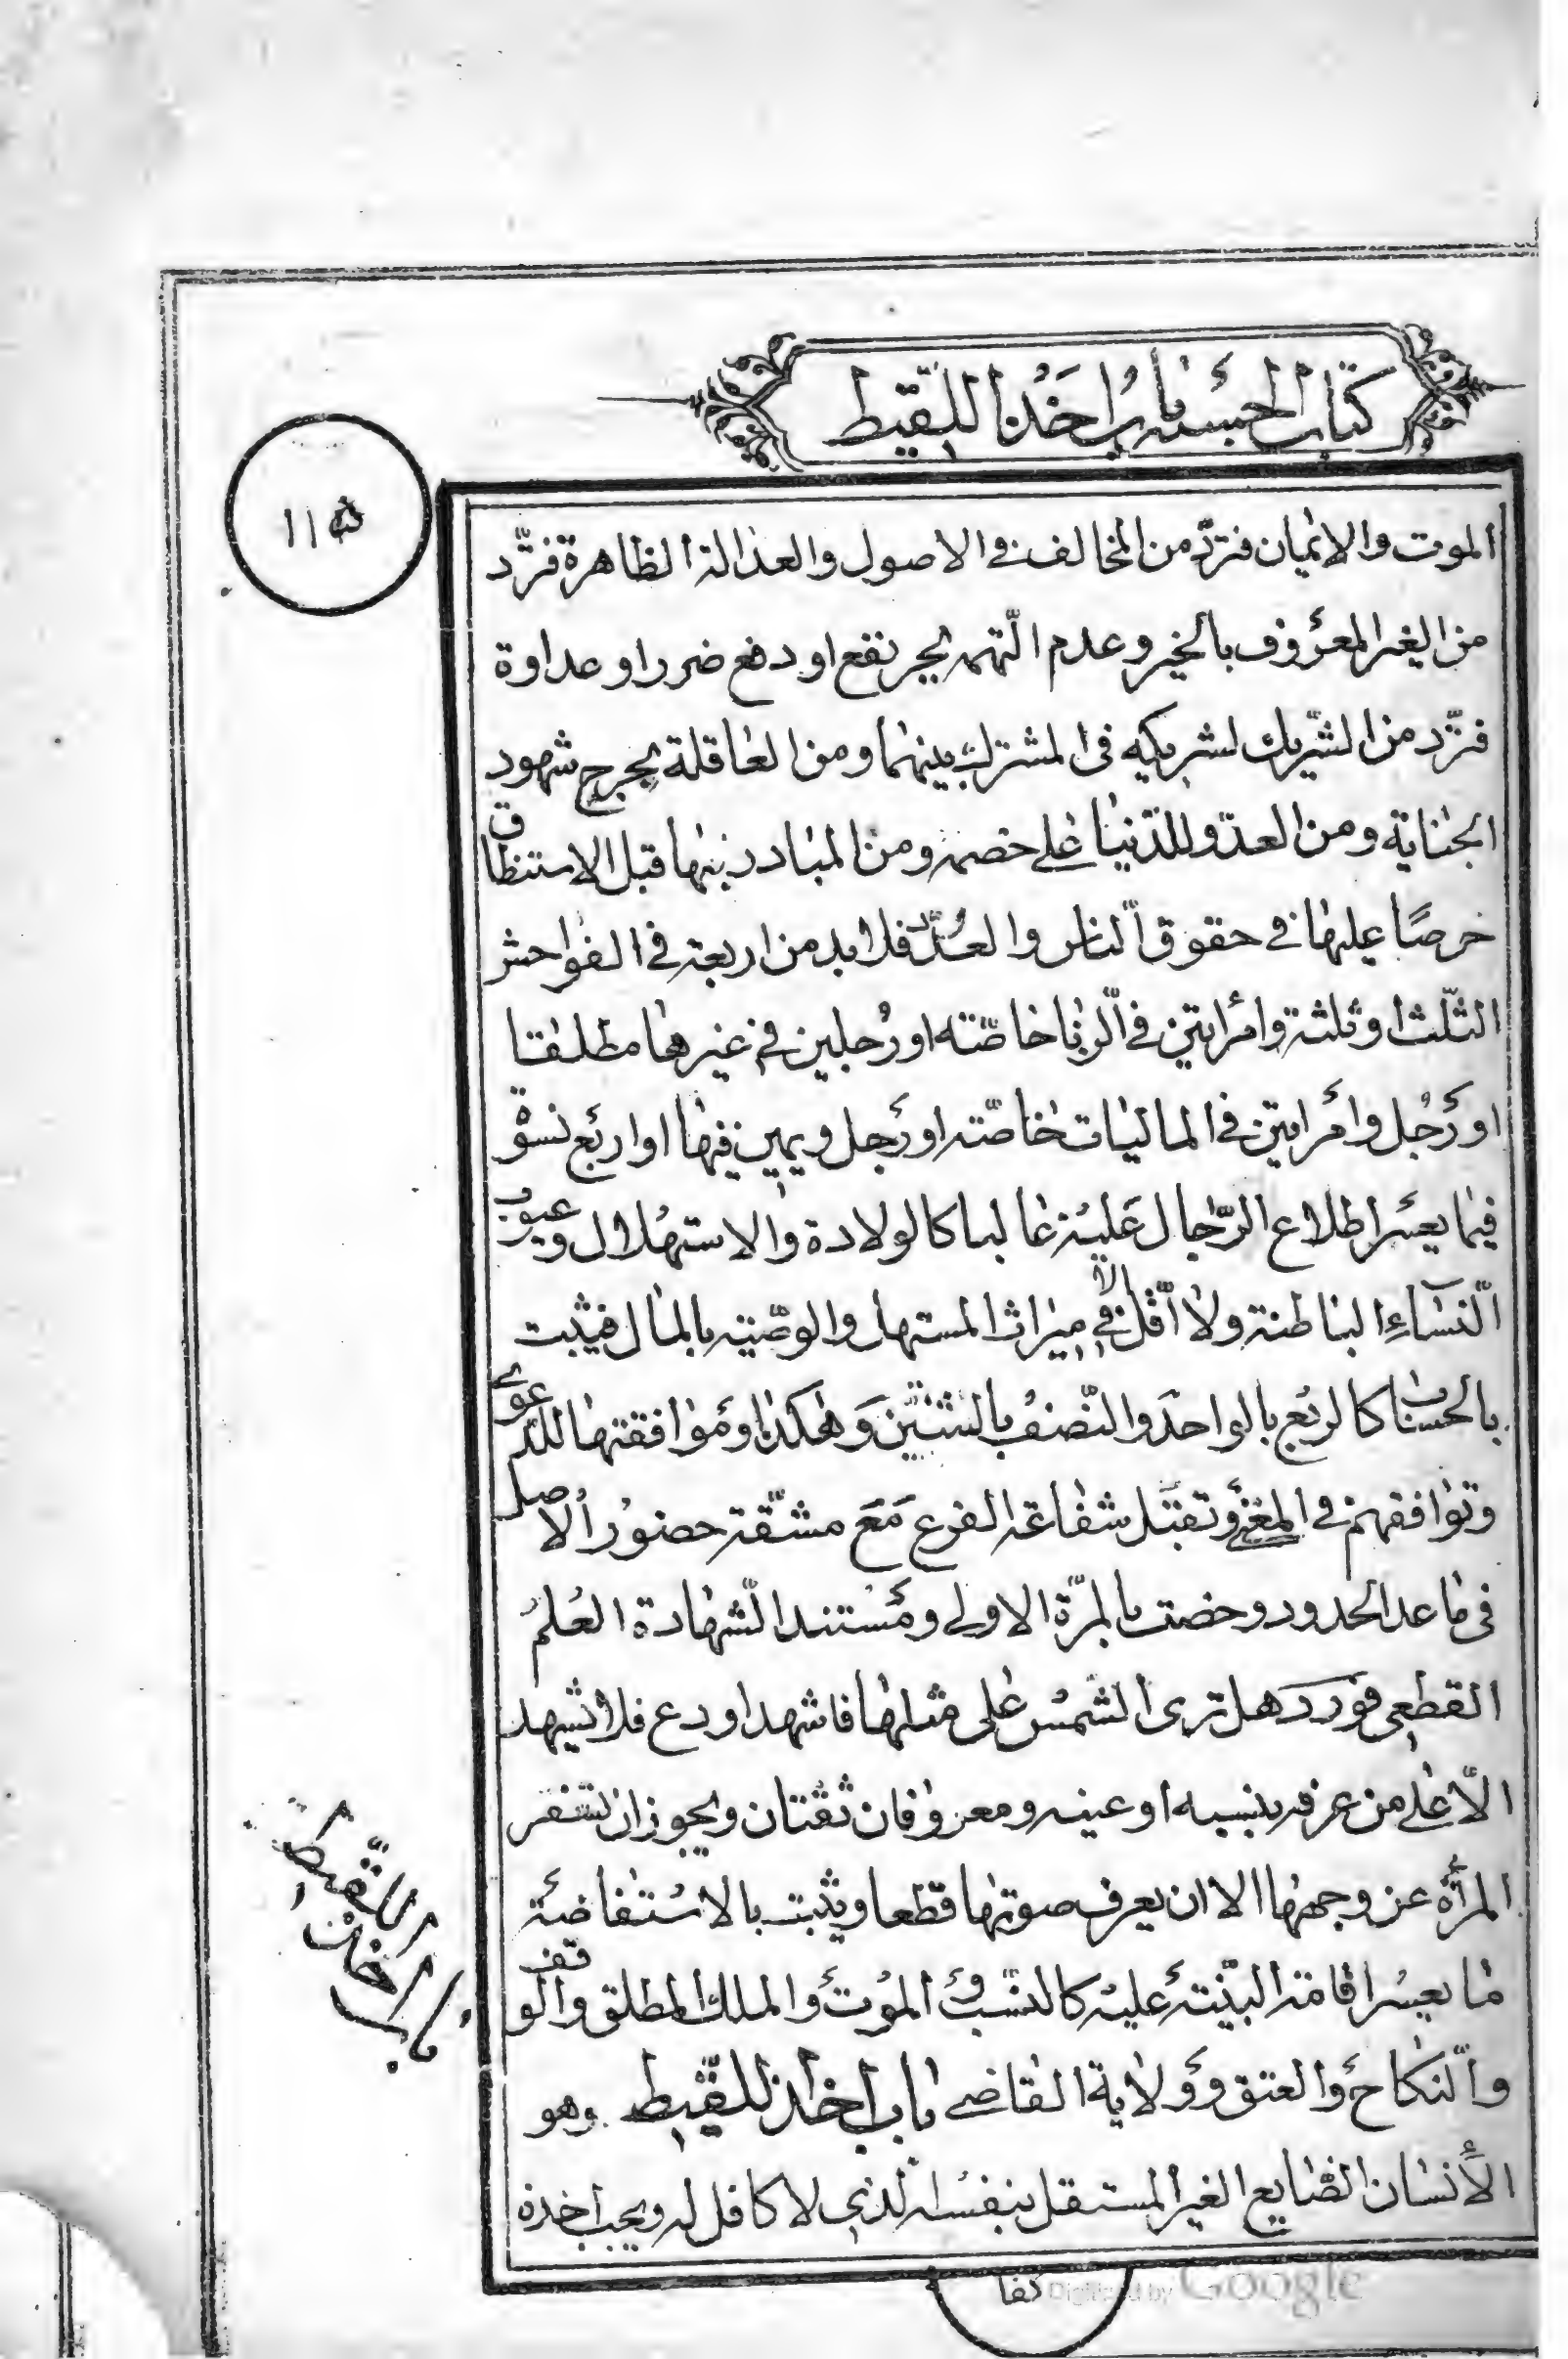 كتاب الحسبة باب اخذ اللقيط
١١٥
الموت والايمان فترد من المخالف في الاصول والعدالة الظاهرة فترد
من الغير المعروف بالخير وعدم التهمة بجر نفع او دفع ضرر او عداوة
فترد من الشريك لشريكه في المشترك بينهما ومن العاقلة بجرح شهود
الجناية ومن العدو للدنيا على خصمه ومن المبادر بها قبل الاستنطاق
حرصا عليها في حقوق الناس والعدد فلا بد من اربعة في الفواحش
الثلث او ثلثة وامراتين في الزنا خاصة او رجلين في غيرها مطلقا
او رجل وامراتين في الماليات خاصة او رجل ويمين فيها او اربع نسوة
فيما يعسر اطلاع الرجال عليه غالبا كالولادة والاستهلال وعيوب
النساء الباطنة ولا اقل الا في ميراث المستهل والوصية بالمال فيثبت
بالحساب كالربع بالواحدة والنصف بالثنتين وهكذا وموافقتها للدعوى
وتوافقهم في المعنى وتقبل شفاعة الفرع مع مشقة حضور الاصل
في ما عدا الحدود وخصت بالمرة الاولى ومستند الشهادة العلم
القطعي فورد هل ترى الشمس على مثلها فاشهد او دع فلا تشهد
الا على من عرفه بنسبه او عينه ومعروفان ثقتان ويجوز ان تسفر
المرأة عن وجهها الا ان يعرف صوتها قطعا ويثبت بالاستفاضة
ما يعسر اقامة البينة عليه كالنسب و الموت والملك المطلق والوقف
والنكاح والعتق وولاية القاضي باب اخذ اللقيط وهو
الأنسان الضايع الغير المستقل بنفسه الذي لا كافل له ويجب اخذه
باب اخذ اللقيط
كفا
Digitized by Google